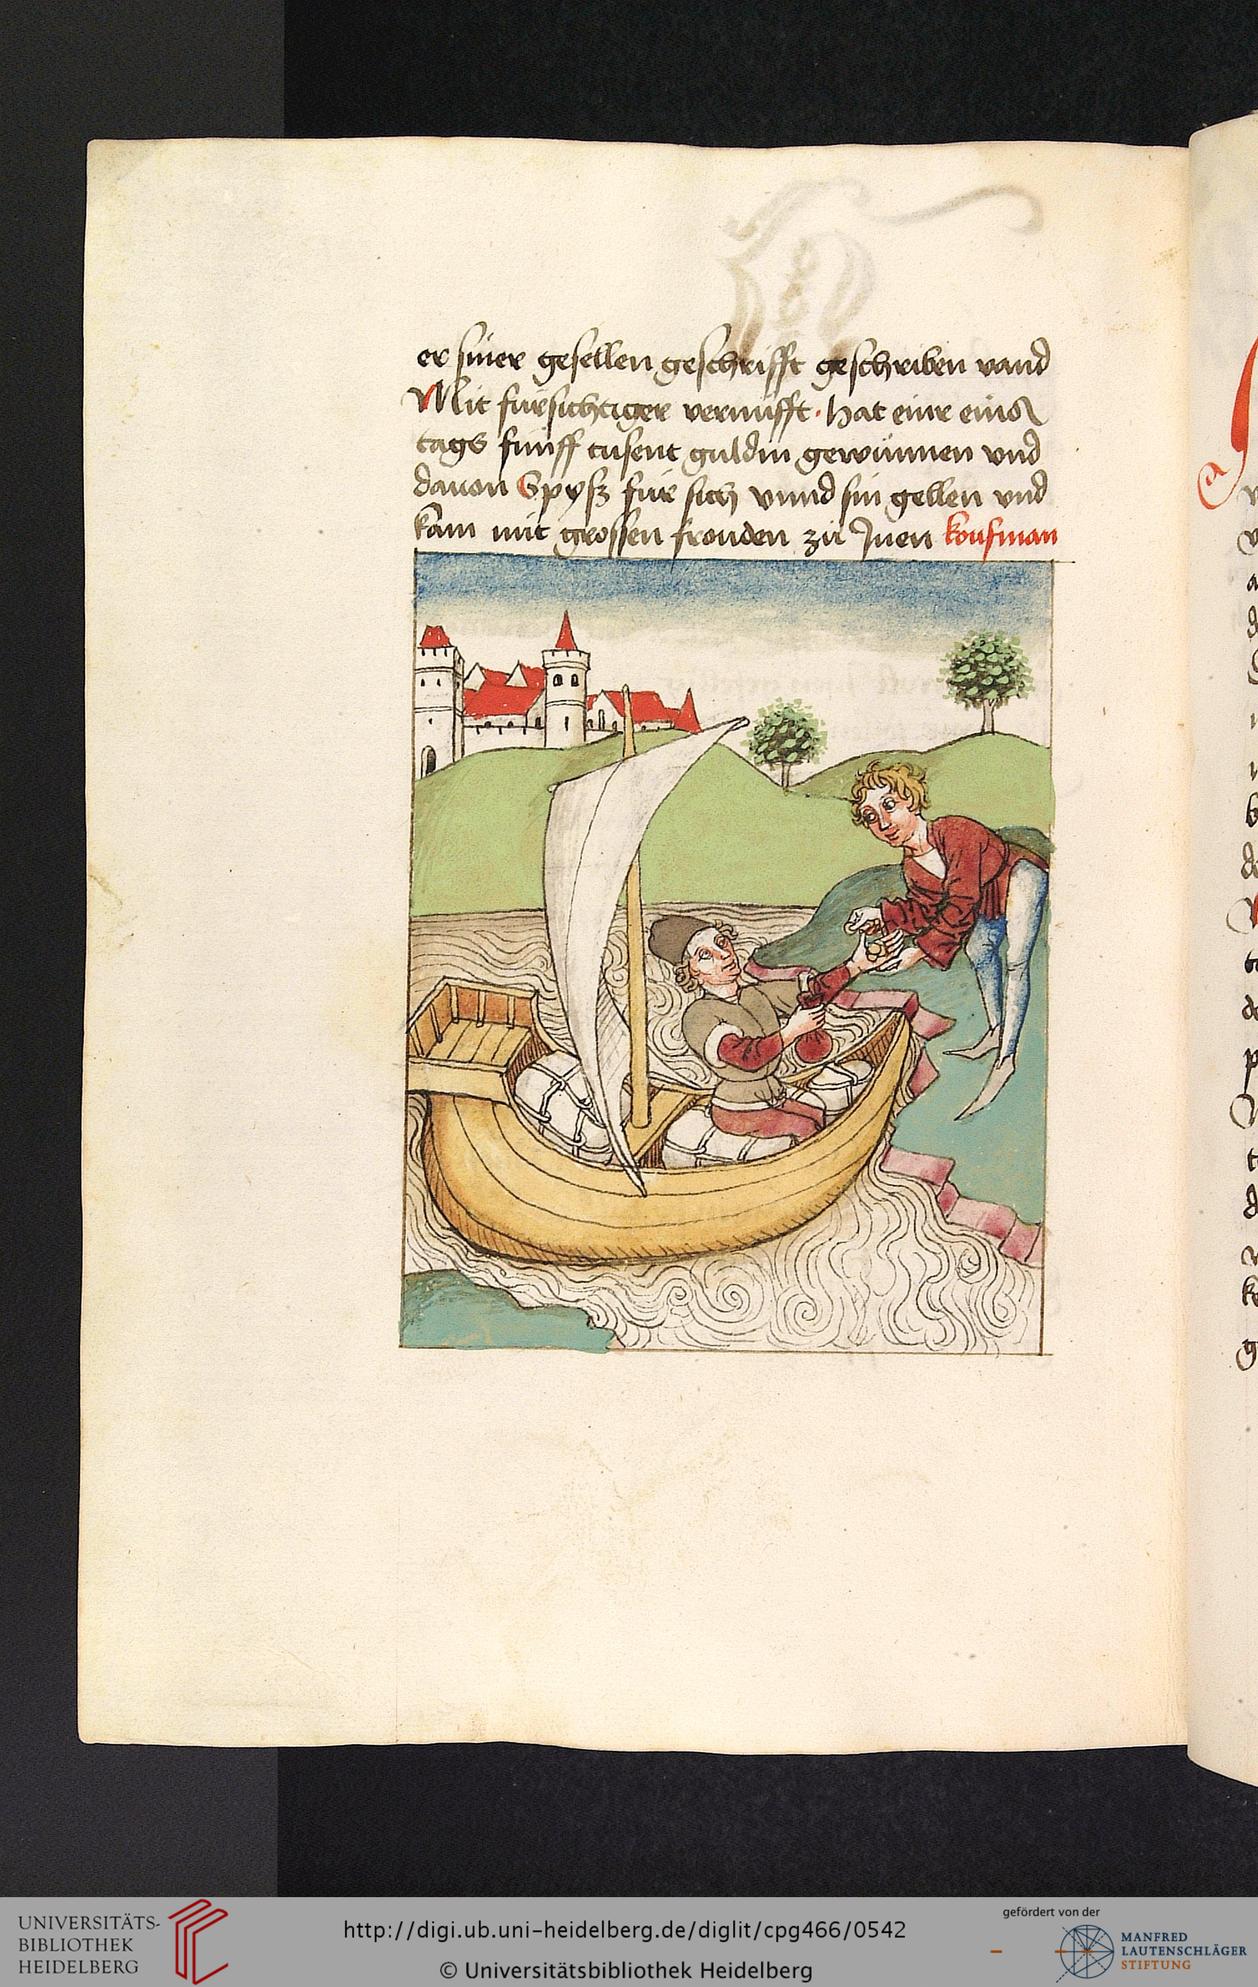 er siner gesellen geschrifft geschriben vand
Mit fürsichtiger vernufft · hat einr eins
tags fünff tusent guldin gewunnen vnd
dauon Spyß für sich vnnd sin gellen vnd
kam mit grossen frouden zu Inen koufman
UNIVERSITÄTS-
BIBLIOTHEK
HEIDELBERG
http://digi.ub.uni-heidelberg.de/diglit/cpg466/0542
© Universitätsbibliothek Heidelberg
gefördert von der
MANFRED
LAUTENSCHLÄGER
STIFTUNG